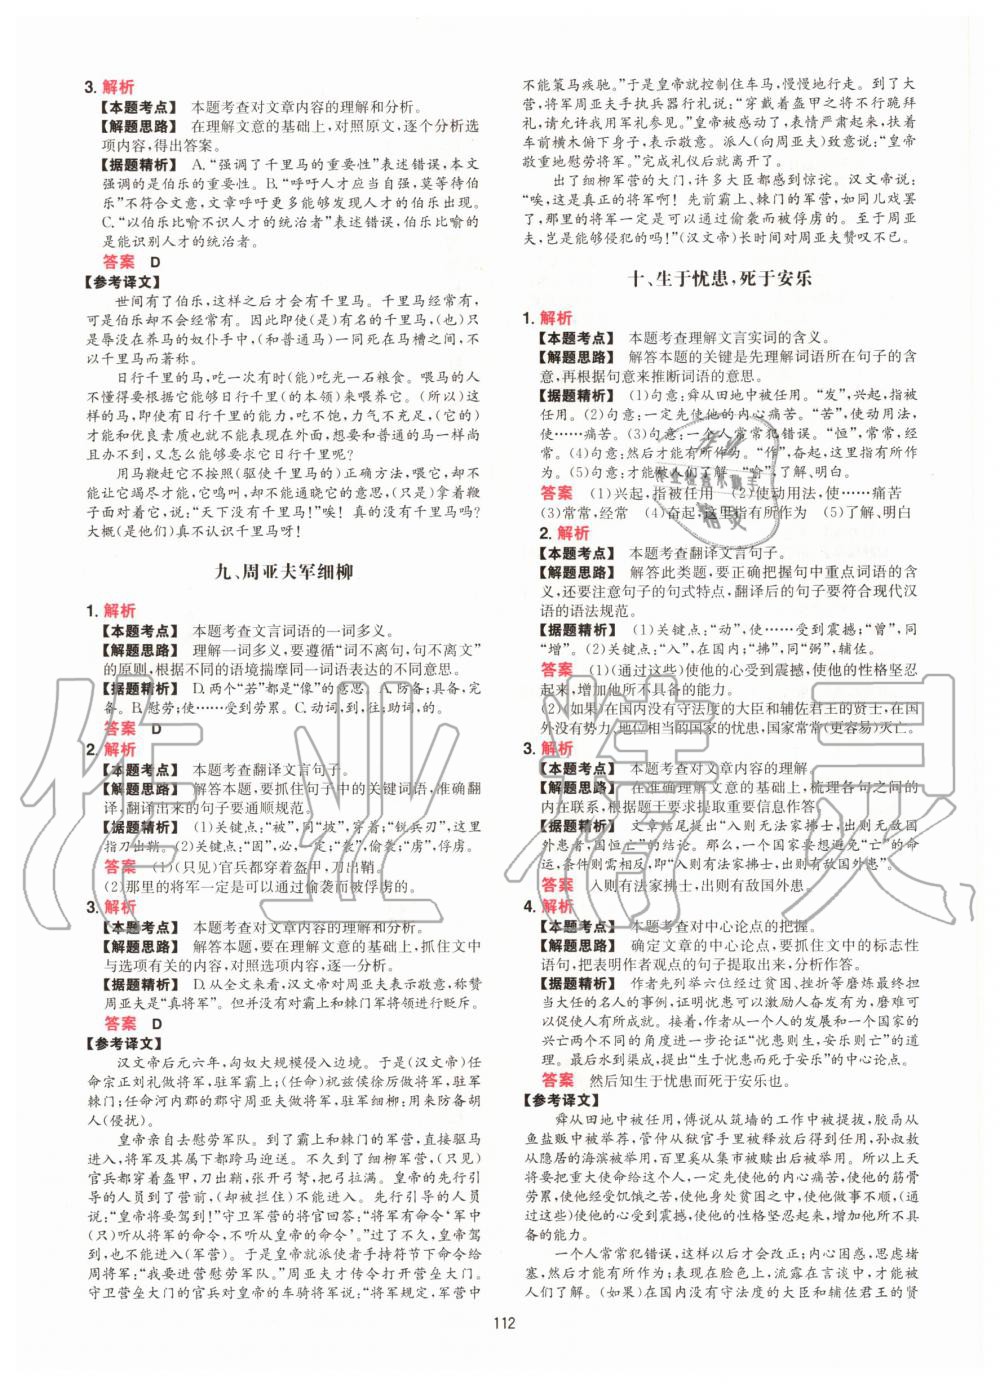 3. 解析
【本题考点】 本题考查对文章内容的理解和分析。
【解题思路】 在理解文意的基础上,对照原文,逐个分析选
项内容,得出答案。
【据题精析】 A.“强调了千里马的重要性”表述错误,本文
强调的是伯乐的重要性。B.“呼吁人才应当自强,莫等待伯
乐”不符合文意,文章呼吁更多能够发现人才的伯乐出现。
C.“以伯乐比喻不识人才的统治者”表述错误,伯乐比喻的
是能识别人才的统治者。
答案 D
【参考译文】
世间有了伯乐,这样之后才会有千里马。千里马经常有,
可是伯乐却不会经常有。因此即使(是)有名的千里马,(也)只
是辱没在养马的奴仆手中,(和普通马)一同死在马槽之间,不
以千里马而著称。
日行千里的马,吃一次有时(能)吃光一石粮食。喂马的人
不懂得要根据它能够日行千里(的本领)来喂养它。(所以)这
样的马,即使有日行千里的能力,吃不饱,力气不充足,(它的)
才能和优良素质也就不能表现在外面,想要和普通的马一样尚
且办不到,又怎么能够要求它日行千里呢?
用马鞭赶它不按照(驱使千里马的)正确方法,喂它,却不
能让它竭尽才能,它鸣叫,却不能通晓它的意思,(只是)拿着鞭
子面对着它,说:“天下没有千里马!”唉! 真的没有千里马吗?
大概(是他们)真不认识千里马呀!
九、周亚夫军细柳
1. 解析
【本题考点】 本题考查文言词语的一词多义。
【解题思路】 理解一词多义,要遵循“词不离句,句不离文”
的原则,根据不同的语境揣摩同一词语表达的不同意思。
【据题精析】 D.两个“若”都是“像”的意思。A.防备;具备,完
备。B.慰劳;使……受到劳累。C.动词,到,往;助词,的。
答案 D
2. 解析
【本题考点】 本题考查翻译文言句子。
【解题思路】 解答本题,要抓住句子中的关键词语,准确翻
译,翻译出来的句子要通顺规范。
【据题精析】 (1)关键点:“被”,同“披”,穿着;“锐兵刃”,这里
指刀出鞘。(2)关键点:“固”,必,一定;“袭”,偷袭;“虏”,俘虏。
答案 (1)(只见)官兵都穿着盔甲,刀出鞘。
(2)那里的将军一定是可以通过偷袭而被俘虏的。
3. 解析
【本题考点】 本题考查对文章内容的理解和分析。
【解题思路】 解答本题,要在理解文意的基础上,抓住文中
与选项有关的内容,对照选项内容,逐一分析。
【据题精析】 D.从全文来看,汉文帝对周亚夫表示敬意,称赞
周亚夫是“真将军”。但并没有对霸上和棘门军将领进行贬斥。
答案 D
【参考译文】
汉文帝后元六年,匈奴大规模侵入边境。于是(汉文帝)任
命宗正刘礼做将军,驻军霸上;(任命)祝兹侯徐厉做将军,驻军
棘门;任命河内郡的郡守周亚夫做将军,驻军细柳:用来防备胡
人(侵扰)。
皇帝亲自去慰劳军队。到了霸上和棘门的军营,直接驱马
进入,将军及其属下都跨马迎送。不久到了细柳军营,(只见)
官兵都穿着盔甲,刀出鞘,张开弓弩,把弓拉满。皇帝的先行引
导的人员到了营前,(却被拦住)不能进入。先行引导的人员
说:“皇帝将要驾到!”守卫军营的将官回答:“将军有命令‘军中
(只)听从将军的命令,不听从皇帝的命令’。”过了不久,皇帝驾
到,也不能进入(军营)。于是皇帝就派使者手持符节下命令给
周将军:“我要进营慰劳军队。”周亚夫才传令打开军营大门。
守卫营垒大门的官兵对皇帝的车骑将军说:“将军规定,军营中
不能策马疾驰。”于是皇帝就控制住车马,慢慢地行走。到了大
营,将军周亚夫手执兵器行礼说:“穿戴着盔甲之将不行跪拜
礼,请允许我用军礼参见。”皇帝被感动了,表情严肃起来,扶着
车前横木俯下身子,表示敬意。派人(向周亚夫)致意说:“皇帝
敬重地慰劳将军。”完成礼仪后就离开。
出了细柳军营的大门,许多大臣都感到惊诧。汉文帝说:
“唉,这是真正的将军啊! 先前霸上、棘门的军营,如同儿戏罢
了,那里的将军一定是可以通过偷袭而被俘虏的。至于周亚
夫,岂是能够侵犯的吗!”(汉文帝)长时间对周亚夫赞叹不已。
十、生于忧患,死于安乐
1. 解析
【本题考点】 本题考查理解文言实词的含义。
【解题思路】 解答本题的关键是先理解词语所在句子的含
意,再根据句意来推断词语的意思。
【据题精析】 (1)句意:舜从田地中被任用。“发”,兴起,指被
任用。(2)句意:一定先使他的内心痛苦。“苦”,使动用法,
使……痛苦。(3)句意:一个人常常犯错误。“恒”,常常,经
常。(4)句意:然后才能有所作为。“作”,奋起,这里指有所作
为。(5)句意:才能被人们了解。“喻”,了解,明白。
答案 (1)兴起,指被任用 (2)使动用法,使……痛苦
(3)常常,经常 (4)奋起,这里指有所作为 (5)了解、明白
2. 解析
【本题考点】 本题考查翻译文言句子。
【解题思路】 解答此类题,要正确把握句中重点词语的含
义,还要注意句子的句式特点,翻译后的句子要符合现代汉
语的语法规范。
【据题精析】 (1)关键点:“动”,使……受到震撼;“曾”,同
“增”。(2)关键点:“入”,在国内;“拂”,同“弼”,辅佐。
答案 (1)(通过这些)使他的心受到震撼,使他的性格坚忍
起来,增加他所不具备的能力。
(2)(如果)在国内没有守法度的大臣和辅佐君王的贤士,在国
外没有势力、地位相当的国家的忧患,国家常常(更容易)灭亡。
3. 解析
【本题考点】 本题考查对文章内容的理解。
【解题思路】 在准确理解文意的基础上,梳理各句之间的
内在联系,根据题干要求提取重要信息作答。
【据题精析】 文章结尾提出“入则无法家拂士,出则无敌国
外患者,国恒亡”的结论。那么,一个国家要想避免“亡”的命
运,条件则需相反,即“入则有法家拂士,出则有敌国外患”。
答案 入则有法家拂士,出则有敌国外患。
4. 解析
【本题考点】 本题考查对中心论点的把握。
【解题思路】 确定文章的中心论点,要抓住文中的标志性
语句,把表明作者观点的句子提取出来,分析作答。
【据题精析】 作者先列举六位经过贫困、挫折等磨炼最终担
当大任的名人的事例,证明忧患可以激励人奋发有为,磨难可
以促使人有所成就。接着,作者从一个人的发展和一个国家的
兴亡两个不同的角度进一步论证“忧患则生,安乐则亡”的道
理。最后水到渠成,提出“生于忧患而死于安乐”的中心论点。
答案 然后知生于忧患而死于安乐也。
【参考译文】
舜从田地中被任用,傅说从筑墙的工作中被提拔,胶鬲从
鱼盐贩中被举荐,管仲从狱官手里被释放后得到任用,孙叔敖
从隐居的海滨被任用,百里奚从集市被赎出后被任用。所以上天
要将重大使命给这个人,一定先使他的内心痛苦,使他的筋骨
劳累,使他经受饥饿之苦,使他身处贫困之中,使他做事不顺,(通
过这些)使他的心受到震撼,使他的性格坚忍起来,增加他所不具
备的能力。
一个人常常犯错误,这以后才会改正;内心困惑,思虑堵
塞,然后才能有所作为;表现在脸色上,流露在言谈中,才能被
人们了解。(如果)在国内没有守法度的大臣和辅佐君王的贤
112
作业精灵